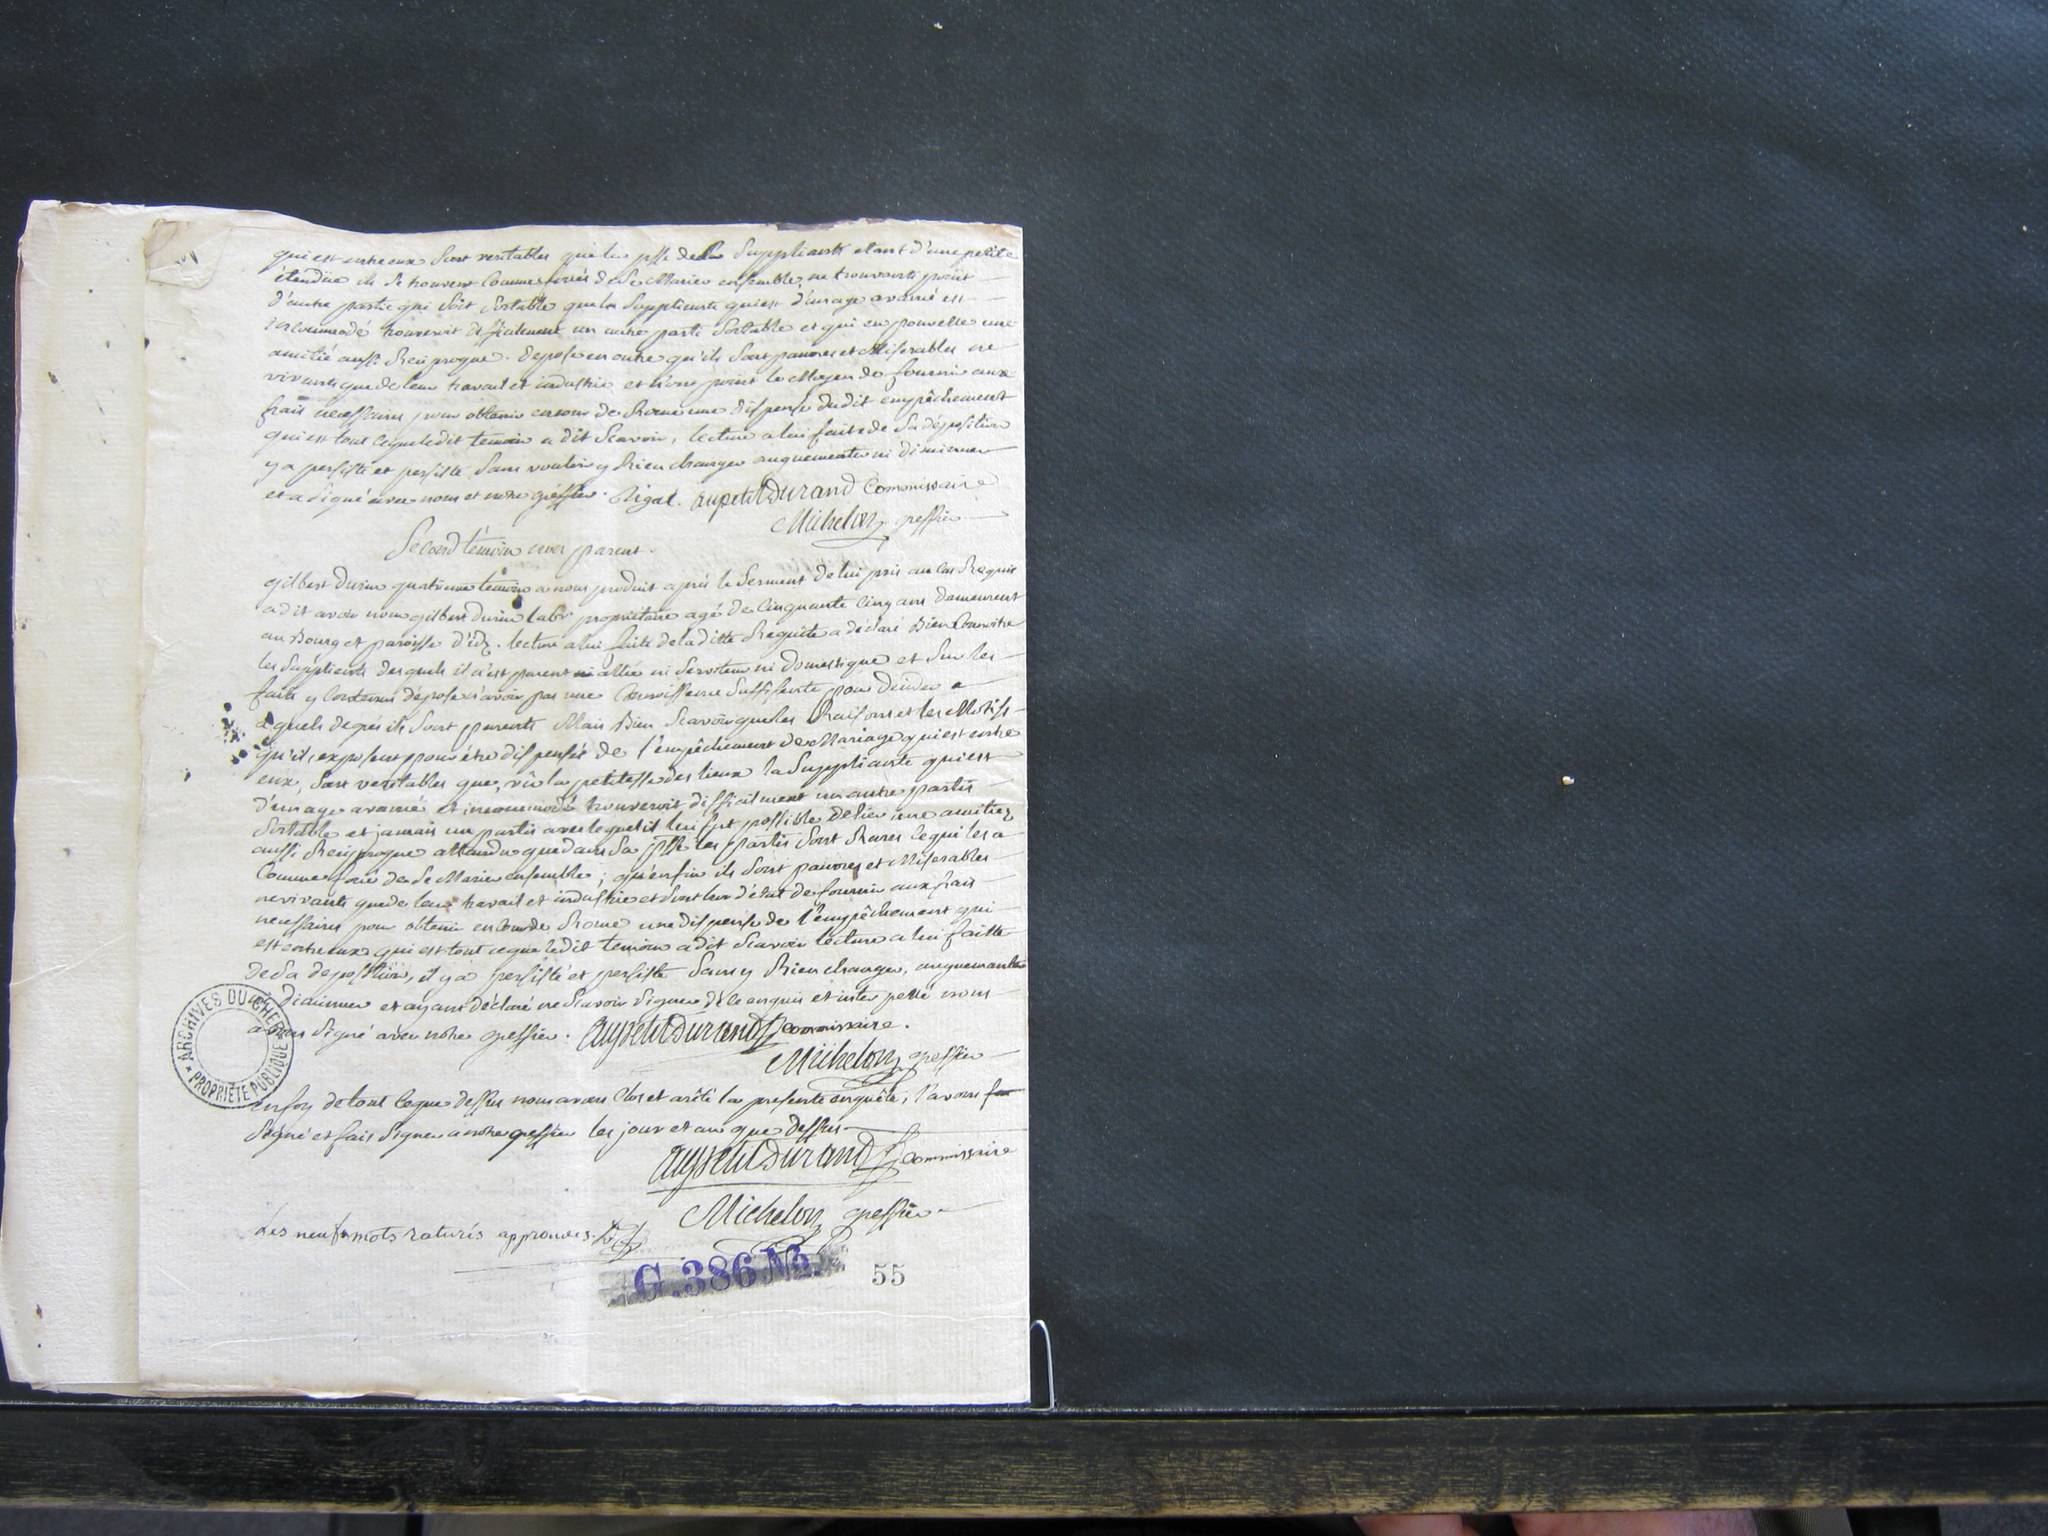 qui est entre eux sont veritables que la psse de la Suppliante etant d'une petite
étendüe ils se trouvent comme forcés de se Marier ensemble, ne trouvants point
d'autre partie qui soit sortable que la Suppliante qui est d'un age avancé est
incommodé trouveroit dificilement un autre parti Sortable et qui eu pour elle une
amitié aussi Reciproque. depose en outre qu'ils sont pauvres et Miserables ne
vivants que de leur travail et industrie et n'ont point le Moyen de fournir aux
frais necessaires pour obtenir en cour de Rome une dispense dudit empêchement
qui est tout ce que ledit temoin a dit Scavoir, lecture a lui faite de Sa déposition
y a persisté et persiste Sans vouloir y Rien changer augmenter ni diminuer
et a Signé avec nous et notre greffier. Rigal. aupetitDurand Commissaire
Michelon greffier
Second témoin non parent.
gilbert durin quatrieme temoin a nous produit aprés le Serment de lui pris au cas Requis
a dit avoir nom gilbert durin labr propriétaire agé de Cinquante Cinq ans demeurent
au Bourg et paroisse d'idz. lecture a lui faite de la ditte Requête a déclaré Bien Connoitre
les Suppliants desquels il n'est parent ni allié ni Serviteur ni domestique et Sur les
faits y Contenus dépose n'avoir pas une Connoissance Suffisente pour decider a
a quels degrés ils Sont parents Mais Bien Scavoir que les Raisons et les Motifs
qu'ils exposent pour être dispensés de l'empêchement de Mariage qui est entre
eux, Sont veritables que, vû la petitesse des lieux la Suppliante qui est
d'un age avancé et incommodé trouveroit difficilment un autre partis
Sortable et jamais un partis avec lequel il lui fut possible de lier une amitiez
aussi Reciproque attendu que dans Sa psse les partis Sont Rares ce qui les a
Comme forcé de Se Marier ensemble; qu'enfin ils Sont pauvres et Miserables
ne vivants que de leur travail et industrie et Sont hor d'état de fournir aux frais
necessaires pour obtenir en Cour de Rome une dispense de l'empêchement qui
est entre eux qui est tout ce que ledit temoin a dit Scavoir lecture a lui faitte
de Sa deposition, il y a persisté et persiste Sans y Rien changer, augmenter
ni diminuer et ayant déclaré ne Scavoir Signer de ce enquis et interpellé nous
avons Signé avec notre greffier. aupetitDurand Commissaire.
Michelon greffier
en foy de tout Ceque dessus nous avons Clos et arêté la presente enquête, l'avons
Signé et fais Signer a notre greffier les jour et an que dessus
aupetitDurand Commissaire
Michelon greffier
Les neuf mots raturés approuvés.
ARCHIVES DU CHER
PROPRIÉTÉ PUBLIQUE
G. 386 No. 55